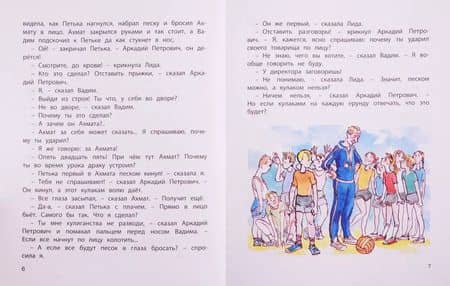 видела, как Петька нагнулся, набрал песку и бросил Ах-
мату в лицо. Ахмат закрылся руками и так стоит, а Ва-
дим подскочил к Петьке да как стукнет в нос.
– Ой! – закричал Петька. – Аркадий Петрович, он де-
рётся!
– Смотрите, до крови! – крикнула Лида.
– Кто это сделал? Отставить прыжки, – сказал Арка-
дий Петрович.
– Я, – сказал Вадим.
– Выйди из строя! Ты что, у себя во дворе?
– Не во дворе, – сказал Вадим.
– Почему ты это сделал?
– А зачем он Ахмата?..
– Ахмат за себя может сказать.. Я спрашиваю, поче-
му ты ударил?
– Я же говорю: за Ахмата!
– Опять двадцать пять! При чём тут Ахмат? Почему
ты во время урока драку устроил?
– Петька первый в Ахмата песком кинул! – сказала я.
– Тебя не спрашивают! – сказал Аркадий Петрович. –
Он кинул, а этот кулакам волю даёт.
– Все глаза засыпал, – сказал Ахмат. – Получит ещё!
– Да-а, – сказал Петька с плачем, – Прямо в лицо
бьёт. Самого бы так. Что я сделал?
– Ты мне хулиганства не разводи, – сказал Аркадий
Петрович и помахал пальцем перед носом Вадима. –
Если все начнут по лицу колотить..
– А если все будут песок в глаза бросать? – спро-
сила я.
6
– Он же первый, – сказала Лида.
– Отставить разговоры! – крикнул Аркадий Петро-
вич. – Я, кажется, ясно спрашиваю: почему ты ударил
своего товарища по лицу?
– Не знаю, чего вы хотите, – сказал Вадим. – Я во-
обще говорить не буду.
– У директора заговоришь!
– Не понимаю, – сказала Лида. – Значит, песком
можно, а кулаком нельзя?
– Ничем нельзя, – сказал Аркадий Петрович. –
Но если кулаками на каждую ерунду отвечать, что это
будет?
7